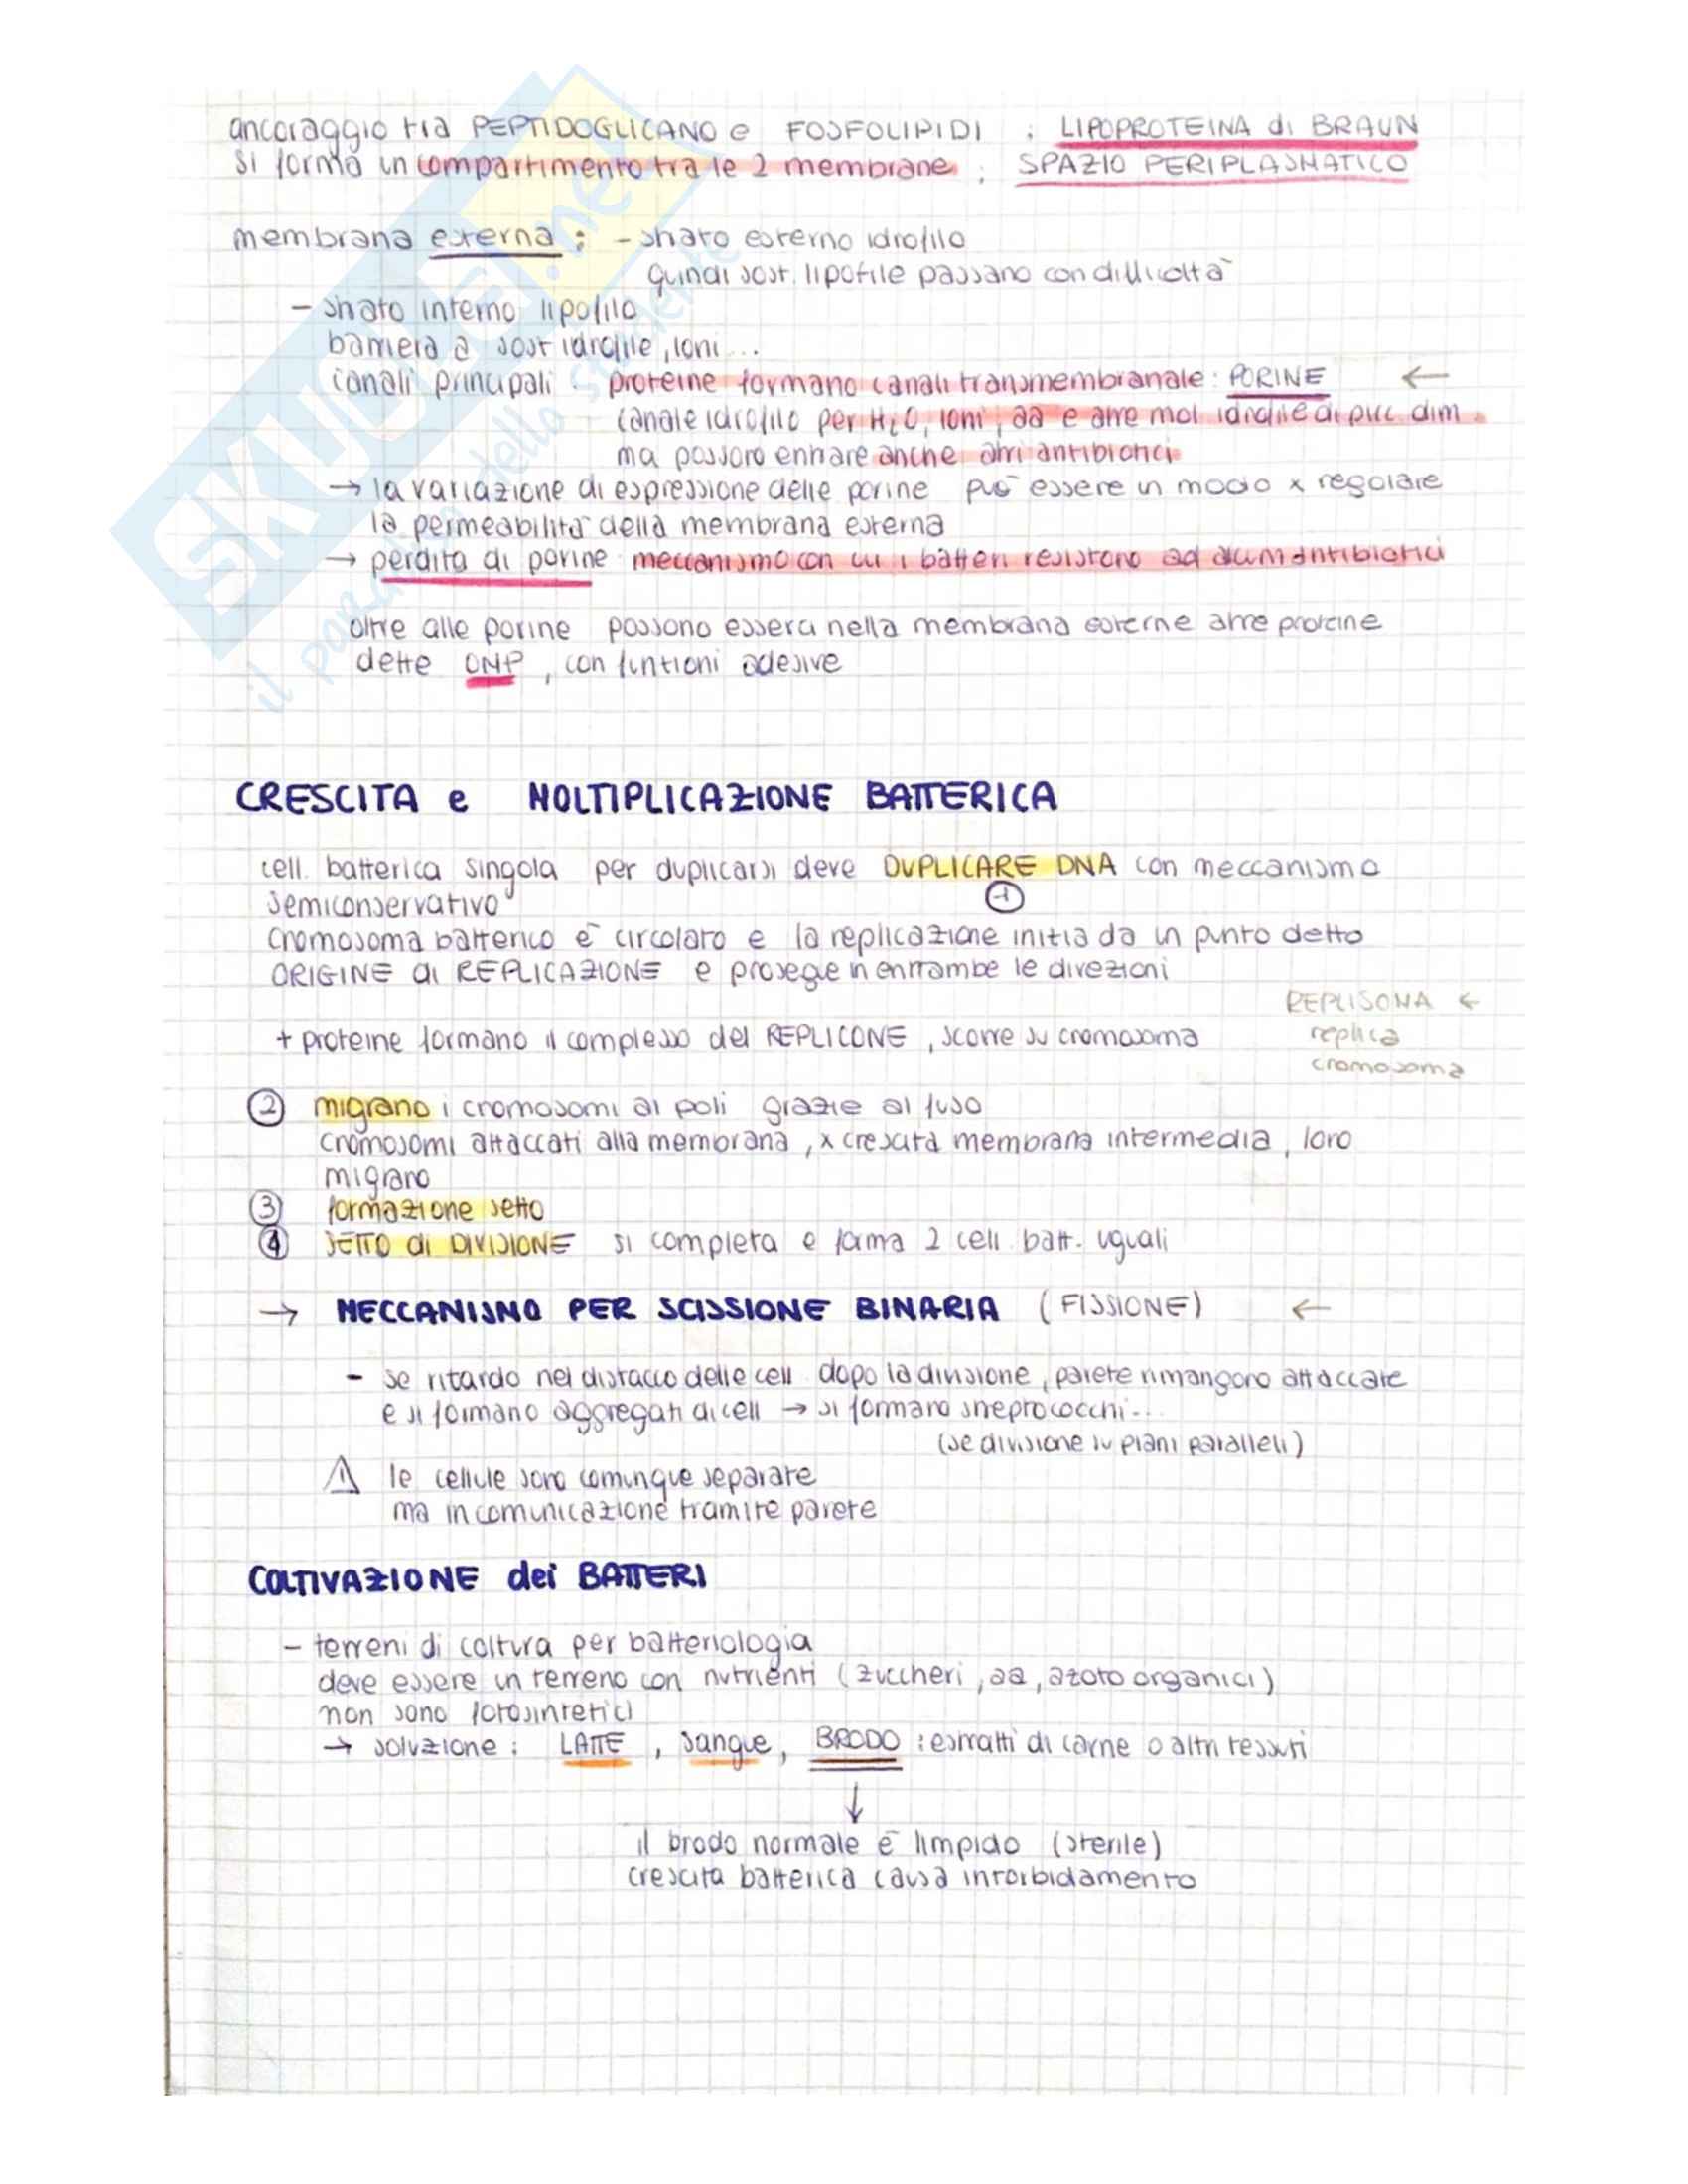 ancoraggio tra PEPTIDOGLICANO e FOSFOLIPIDI : LIPOPROTEINA di BRAUN
si forma un compartimento tra le 2 membrane : SPAZIO PERIPLASMATICO
membrana esterna : - strato esterno idrofilo
quindi sost. lipofile passano con difficoltà
- strato interno lipofilo
barriera a sost idrofile, ioni...
canali principali : proteine formano canali transmembranale : PORINE ←
canale idrofilo per H2O, ioni, aa e altre mol idrofile di picc. dim.
ma possono entrare anche altri antibiotici
→ la variazione di espressione delle porine può essere un modo x regolare
la permeabilità della membrana esterna
→ perdita di porine meccanismo con cui i batteri resistono ad alcuni antibiotici
oltre alle porine possono esserci nella membrana esterne altre proteine
dette OMP, con funzioni adesive
CRESCITA e MOLTIPLICAZIONE BATTERICA
cell. batterica singola per duplicarsi deve DUPLICARE DNA con meccanismo
semiconservativo 1
cromosoma batterico è circolare e la replicazione inizia da un punto detto
ORIGINE di REPLICAZIONE e prosegue in entrambe le direzioni
REPLISOMA ←
+ proteine formano il complesso del REPLICONE, scorre su cromosoma
replica
cromosoma
2 migrano i cromosomi ai poli grazie al fuso
cromosomi attaccati alla membrana, x crescita membrana intermedia, loro
migrano
3 formazione setto
4 SETTO di DIVISIONE si completa e forma 2 cell. batt. uguali
→ MECCANISMO PER SCISSIONE BINARIA (FISSIONE) ←
- se ritardo nel distacco delle cell. dopo la divisione, parete rimangono attaccate
e si formano aggregati di cell → si formano streptococchi...
(se divisione su piani paralleli)
⚠ le cellule sono comunque separate
ma in comunicazione tramite parete
COLTIVAZIONE dei BATTERI
- terreni di coltura per batteriologia
deve essere un terreno con nutrienti (zuccheri, aa, azoto organici)
non sono fotosintetici
→ soluzione : LATTE, sangue, BRODO : estratti di carne o altri tessuti
↓
il brodo normale è limpido (sterile)
crescita batterica causa intorbidamento
SKUOLA.net